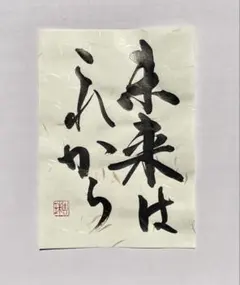 未来は
これから